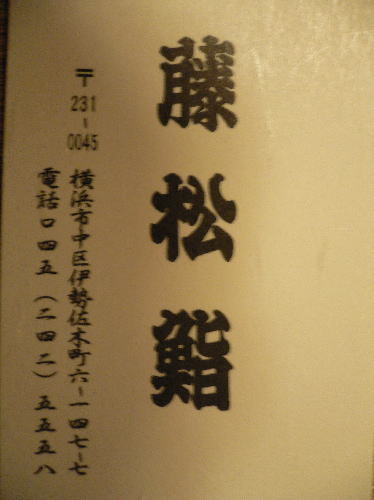 藤松鮨
〒231-0045
横浜市中区伊勢佐木町六-一四七-七
電話〇四五(二四二)五五五八